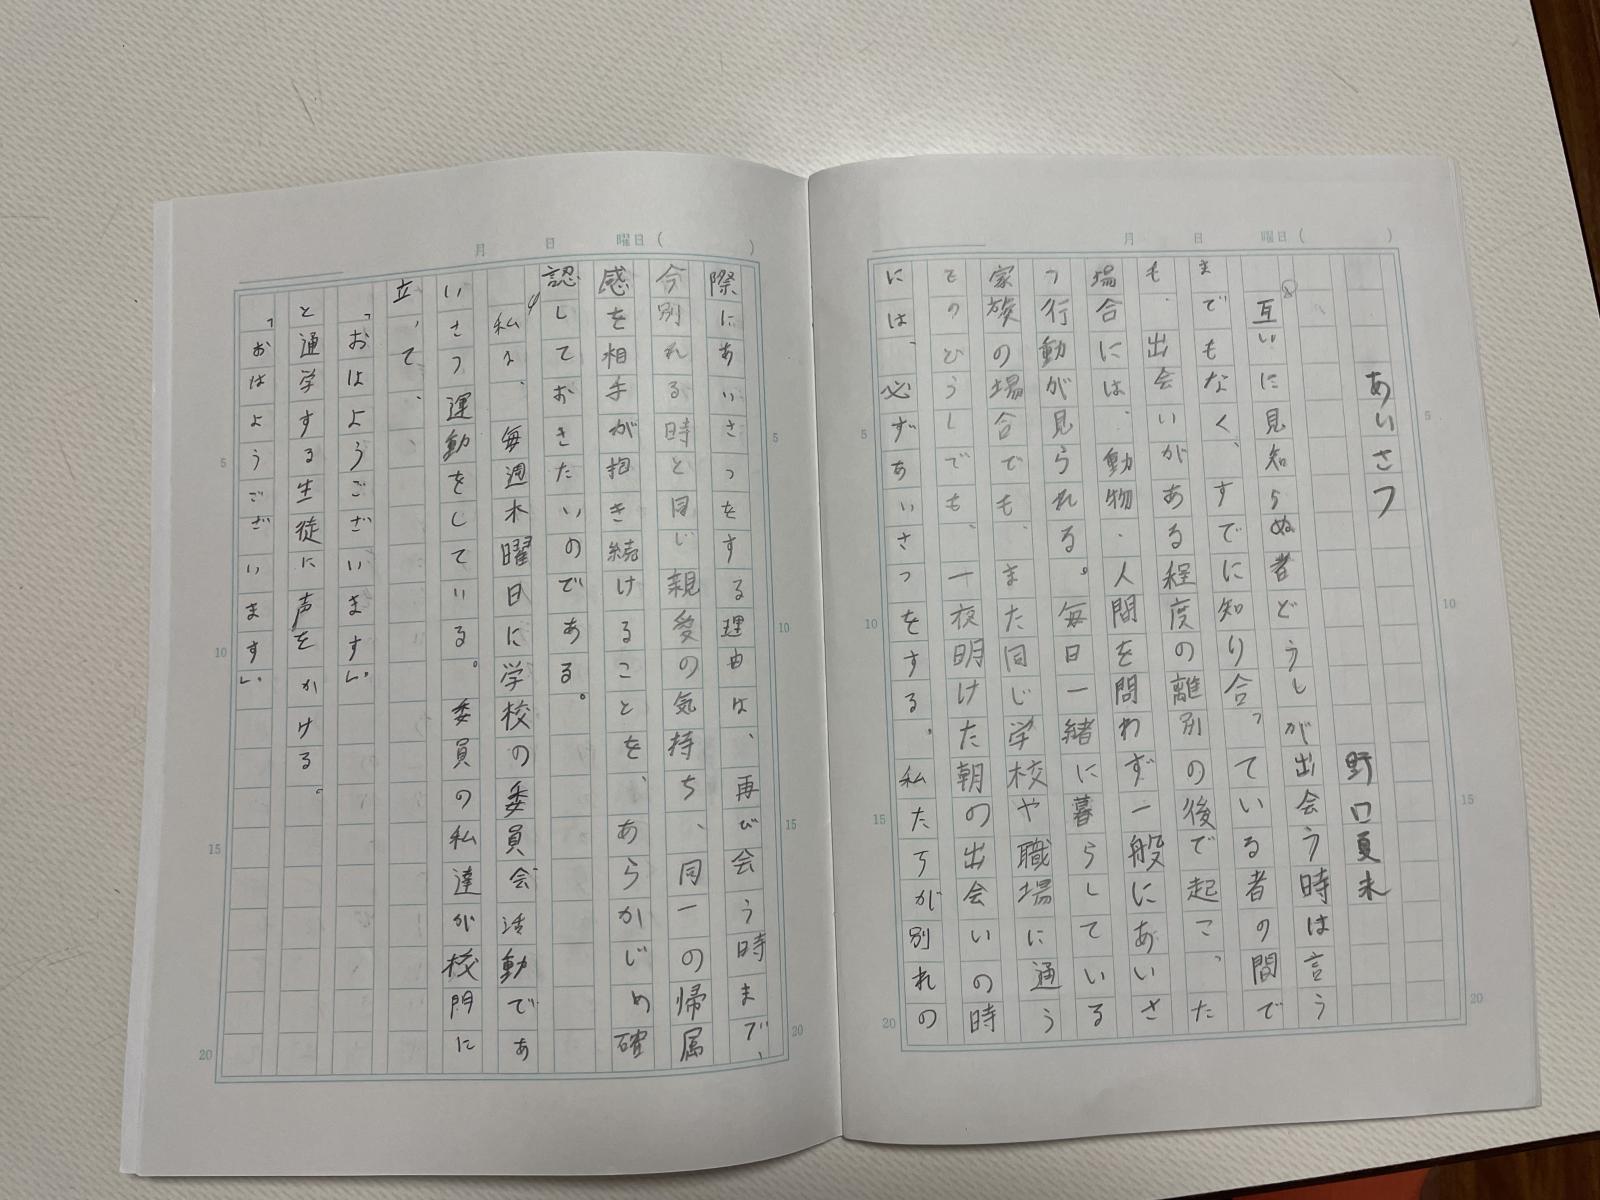 月　日　曜日（　）
あいさつ
野口夏未
互いに見知らぬ者どうしが出会う時は言う
までもなく、すでに知り合っている者の間で
も、出会いがある程度の離別の後で起こった
場合には、動物・人間を問わず一般にあいさ
つ行動が見られる。毎日一緒に暮らしている
家族の場合でも、また同じ学校や職場に通う
ものどうしでも、一夜明けた朝の出会いの時
には、必ずあいさつをする。私たちが別れの
5
10
15
20
5
10
15
20
月　日　曜日（　）
際にあいさつをする理由は、再び会う時まで、
今別れる時と同じ親愛の気持ち、同一の帰属
感を相手が抱き続けることを、あらかじめ確
認しておきたいのである。
私は、毎週木曜日に学校の委員会活動であ
いさつ運動をしている。委員の私達が校門に
立って、
「おはようございます」
と通学する生徒に声をかける。
「おはようございます」
5
10
15
20
5
10
15
20